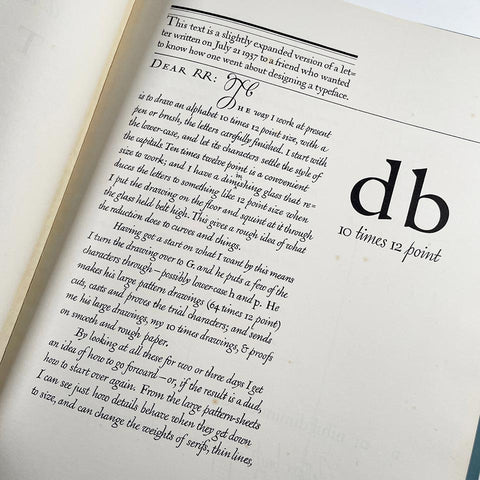 This text is a slightly expanded version of a let-
ter written on July 21 1937 to a friend who wanted
to know how one went about designing a typeface.
DEAR RR: THE way I work at present
is to draw an alphabet 10 times 12 point size, with a
pen or brush, the letters carefully finished. I start with
the lower-case, and let its characters settle the style of
the capitals. Ten times twelve point is a convenient
size to work; and I have a diminishing glass that re=
duces the letters to something like 12 point size when
I put the drawing on the floor and squint at it through
the glass held belt high. This gives a rough idea of what
the reduction does to curves and things.
Having got a start on what I want by this means
I turn the drawing over to G. and he puts a few of the
characters through—possibly lower-case h and p. He
makes his large pattern drawings (64 times 12 point)
cuts, casts and proves the trial characters; and sends
me his large drawings, my 10 times drawings, & proofs
on smooth and rough paper.
By looking at all these for two or three days I get
an idea of how to go forward—or, if the result is a dud,
how to start over again. From the large pattern-sheets
I can see just how details behave when they get down
to size, and can change the weights of serifs, thin lines,
db
10 times 12 point